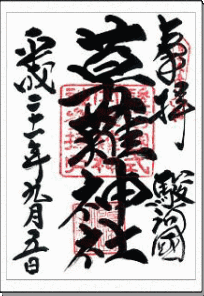 奉拝
駿河國
草薙神社
平成二十一年九月五日